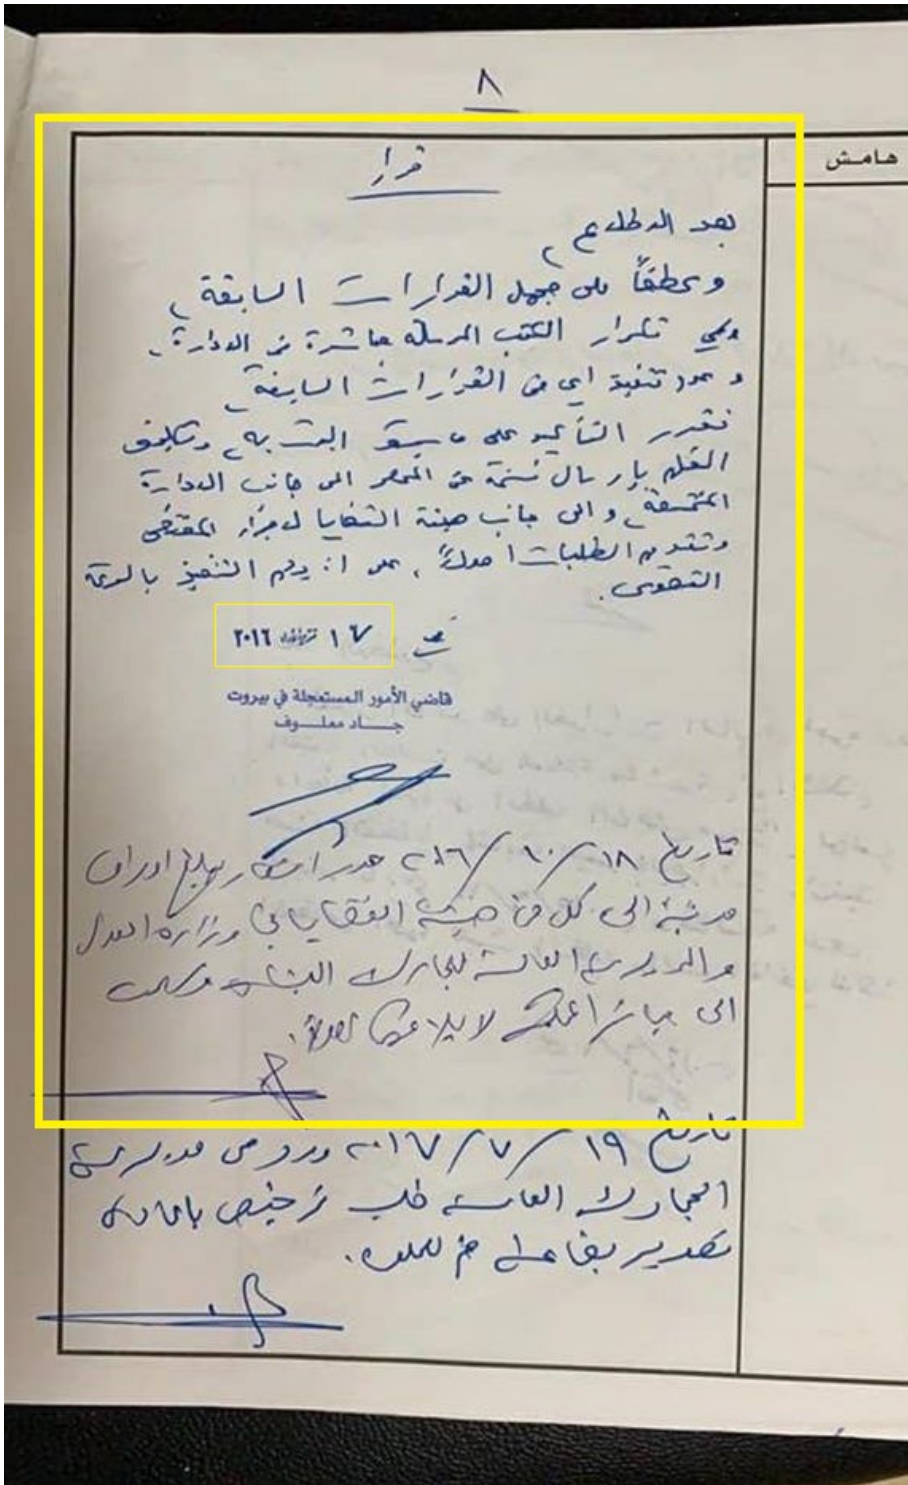 ٨
هامش
قرار
بعد الاطلاع،
وعطفاً على مجمل القرارات السابقة،
وعلى تكرار الكتب المرسلة مباشرة من الادارة،
وعدم تنفيذ اي من القرارات السابقة،
نقرر التأكيد على ما سبق البت به، وتكليف
القلم بإرسال نسخة عن المحضر الى جانب الادارة
المختصة، والى جانب هيئة القضايا لاجراء المقتضى
وتقديم الطلبات اصولاً، على ان يتم التنفيذ بالسرعة
القصوى.
في ١٧ تشرين الاول ٢٠١٦
قاضي الأمور المستعجلة في بيروت
جاد معلوف
تاريخ ١٨/١٠/٢٠١٦ صدر اشعار بابلاغ اوراق
مدنية الى كل من هيئة القضايا في وزارة العدل
والمديرية العامة للجمارك اللبنانية وسلمت
الى مباشر المحكمة لابلاغها اصولاً.
تاريخ ١٩/٧/٢٠١٧ ورد من مديرية
الجمارك العامة طلب ترخيص باعادة
تصدير بضاعة ضم للملف.